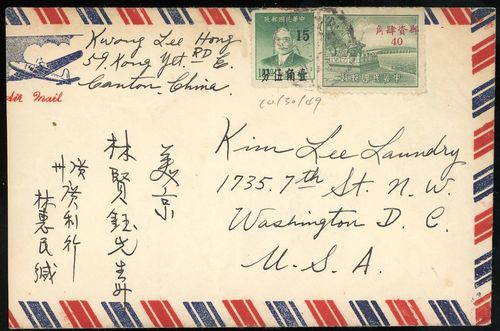 Kwong Lee Hong
59. Kong Yet. RD E.
Canton, China
Air Mail
中華民國郵政
15
壹角伍分
郵資肆角
40
10/30/49
Kim Lee Laundry
1735. 7th St. N. W.
Washington D. C.
U. S. A.
美京
林賢鈺先生
州廣利行
林惠民緘